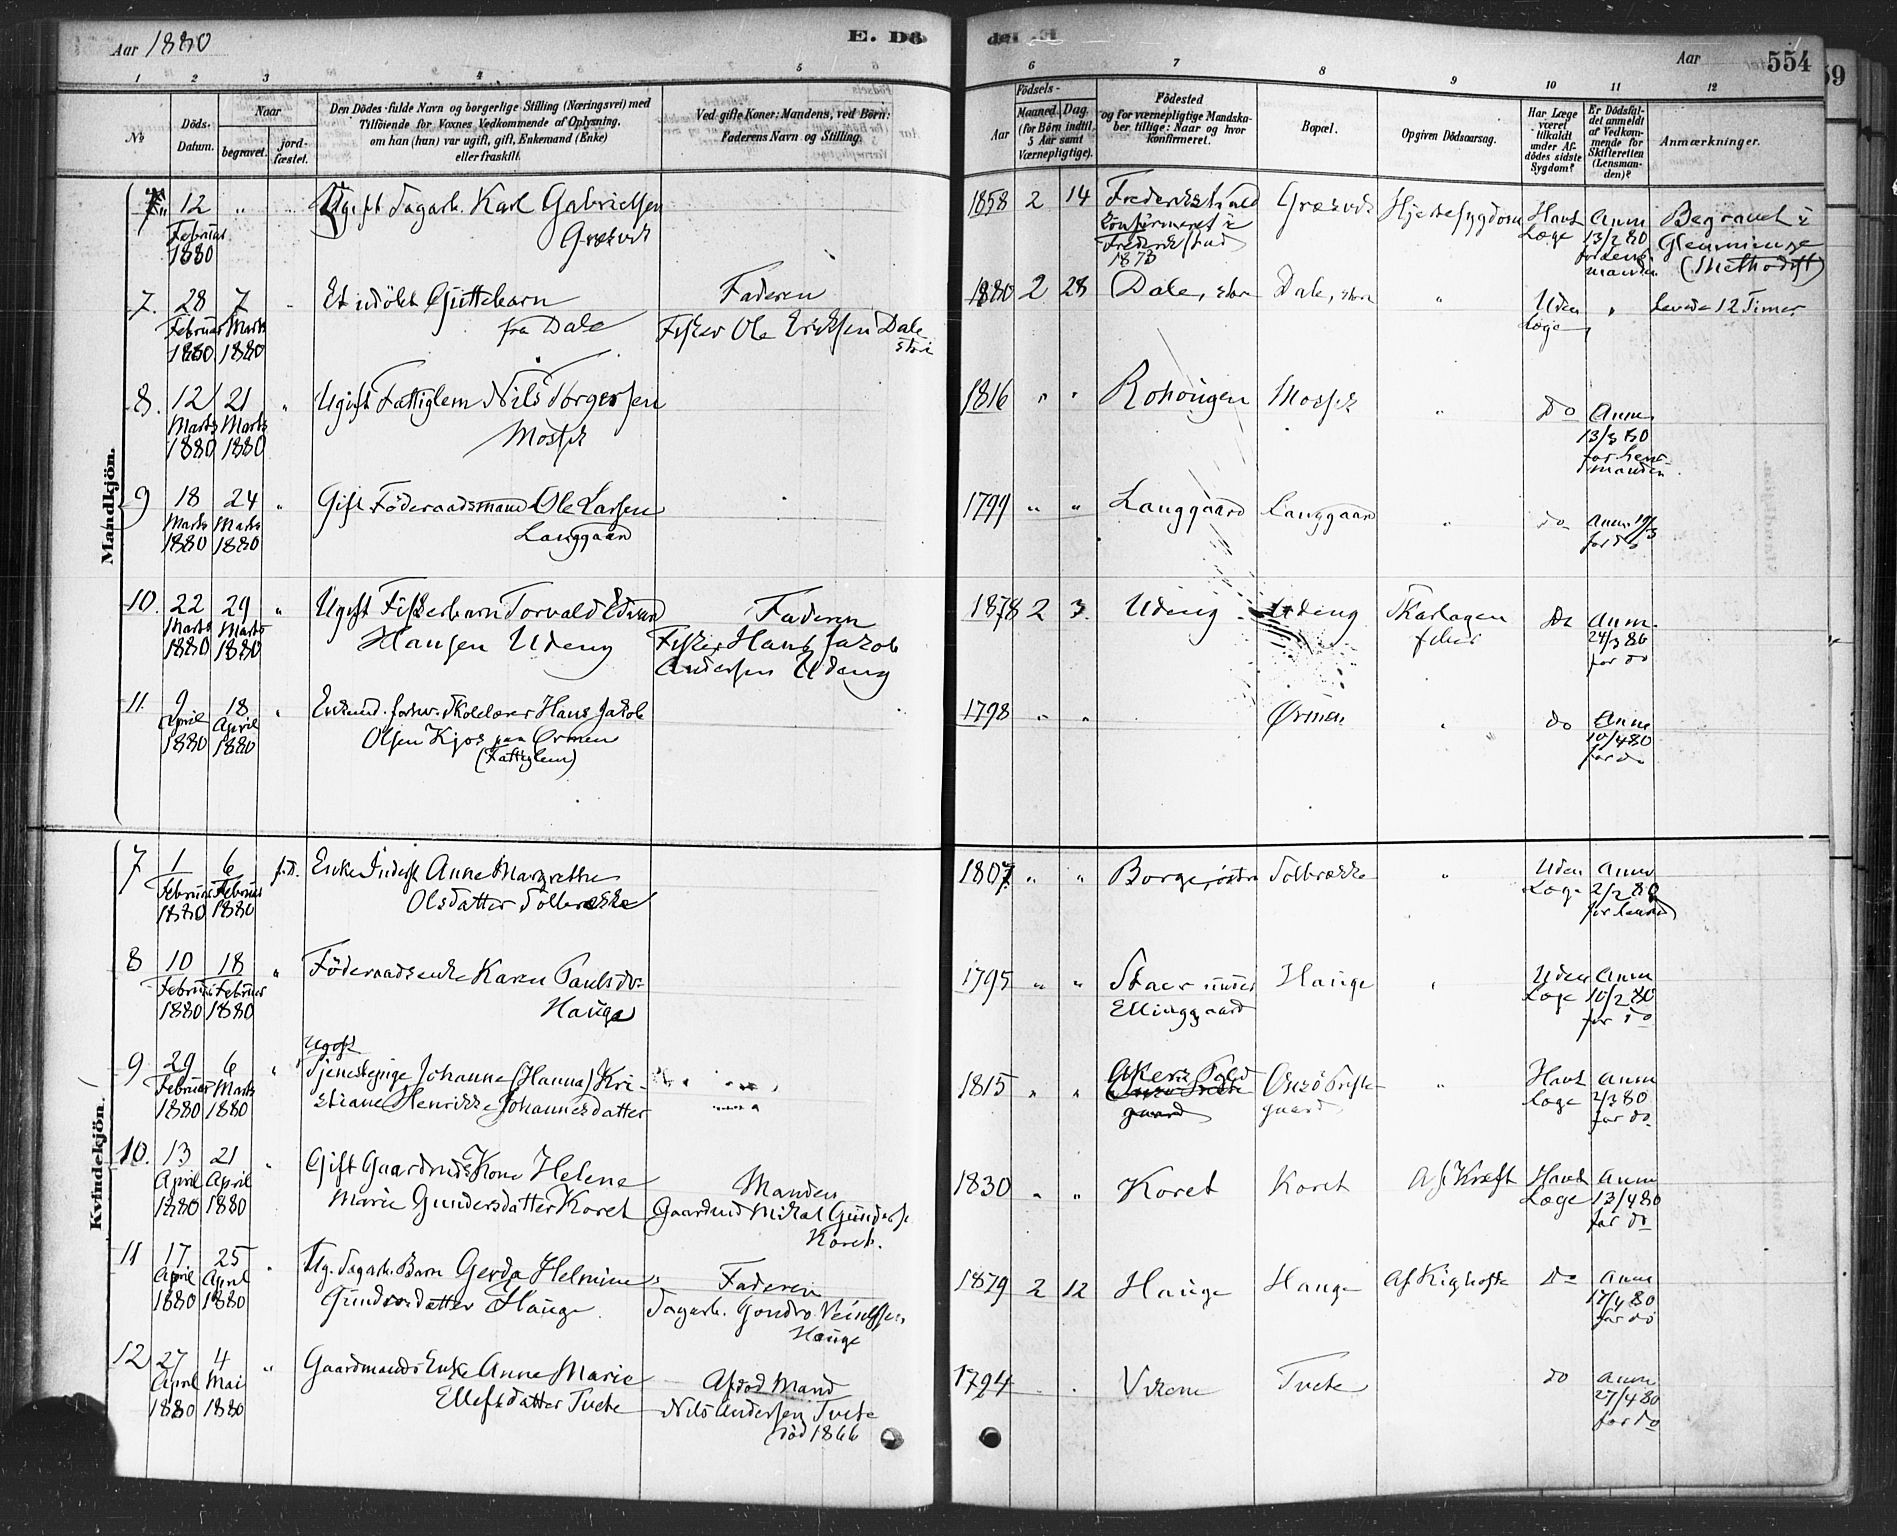 Aar 1880
E. Dö
de. E.
Aar
554
59
1 2 3 4 5 6 7 8 9 10 11 12
No
Döds-Datum.
Naar
begravet.
jord-fæstet.
Den Dödes fulde Navn og borgerlige Stilling (Næringsvei) med
Tilföiende for Voxnes Vedkommende af Oplysning,
om han (hun) var ugift, gift, Enkemand (Enke)
eller fraskilt.
Ved gifte Koner: Mandens, ved Börn:
Faderens Navn og Stilling.
Födsels-
Aar
Maaned. Dag.
(for Börn indtil
5 Aar samt
Værnepligtige).
Födested
og for værnepligtige Mandska-
ber tillige: Naar og hvor
konfirmeret.
Bopæl.
Opgiven Dödsaarsag.
Har Læge
været
tilkaldt
under Af-
dödes sidste
Sygdom?
Er Dödsfal-
det anmeldt
af Vedkom-
mende for
Skifteretten
(Lensman-
den)?
Anmærkninger.
Mandkjön.
12 Februar 1880 " Ugift Dagarb. Karl Gabrielsen
Græsvik
1858 2 14 Frederikstad
konfirmeret i
Frederikstad
1873
Græsvik Hjertesygdom Havt Læge Anm 13/2 80 for Lensmanden Begravet i
Glemminge
(Methodist)
7. 28 Februar 1880 7 Marts 1880 Et udöbt Guttebarn
fra Dale
Faderen
Fisker Ole Eriksen Dale
store
1880 2 28 Dale, store Dale, store " Uden Læge " Levede 12 Timer
8. 12 Marts 1880 21 Marts 1880 " Ugift Fattiglem Nils Torgersen
Mossik
1816 " " Rohougen Mossik " Do Anm 13/3 80 for Lensmanden
9 18 Marts 1880 24 Marts 1880 " Gift Föderaadsmand Ole Larsen
Langgaard
1799 " " Langgaard Langgaard " do Anm. 19/3 for do
10. 22 Marts 1880 29 Marts 1880 " Ugift Fiskerbarn Torvald Edvard
Hansen Udeng
Faderen
Fisker Hans Jakob
Andersen Udeng
1878 2 3. Udeng Udeng Skarlagen
feber
Do Anm. 24/3 80 for do
11. 9 April 1880 18 April 1880 " Enkemd. forhv. Skolelærer Hans Jakob
Olsen Kjos paa Ørmen
(Fattiglem)
1798 " " Ørmen " do Anm 10/4 80 for do
Kvindekjön.
7 1 Februar 1880 6 Februar 1880 f.D. Enke Inderst Anne Margrethe
Olsdatter Solbrække
1807. " " Borge, østre Solbrække " Uden Læge Anm 2/2 80 for Lensmd
8 10 Februar 1880 18 Februar 1880 " Föderaadsenke Karen Paulsdr
Hauge
1795 " " Staer under
Ellinggaard
Hauge " Uden Læge Anm 10/2 80 for do
9 29 Februar 1880 6 Marts 1880 " Ugift
Tjenestepige Johanne (Hanna) Kri-
stiane Henrikke Johannesdatter
1815 " " Akers
gaard
Onsö Præste-
gaard
" Havt Læge Anm 2/3 80 for do
10. 13 April 1880 21 April 1880 " Gift Gaardmds Kone Helene
Marie Gundersdatter Koret
Manden
Gaardmd Mikal Gunders.
Koret.
1830 " " Koret Koret Af Kræft Havt Læge Anm 13/4 80 for do
11 17 April 1880 25 April 1880 " Ug. Dagarb. Barn Gerda Helmine
Gundrosdatter Hauge
Faderen
Dagarb. Gondro
Hauge
1879 2 12 Hauge Hauge Af Kighoste Do Anm 17/4 80 for do
12 27 April 1880 4 Mai 1880 " Gaardmands Enke Anne Marie
Ellefsdatter Tvete
Afdød Mand
Nils Andersen Tvete
død 1866
1794 " " Vikene Tvete do Anm 27/4 80 for do